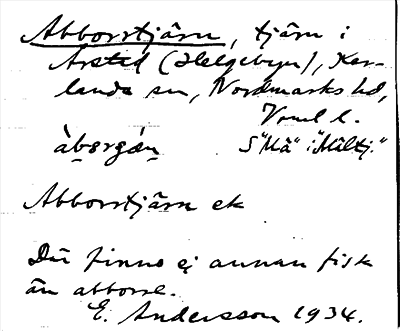 Abborrtjärn, tjärn i
Årstad (Helgebyn), Kar-
landa sn, Nordmarks hd,
Vrml l.
àbǝrgǽn S "Mä" i "Mältj."
Abborrtjärn ek
Där finns ej annan fisk
än abborre.
E. Andersson 1934.